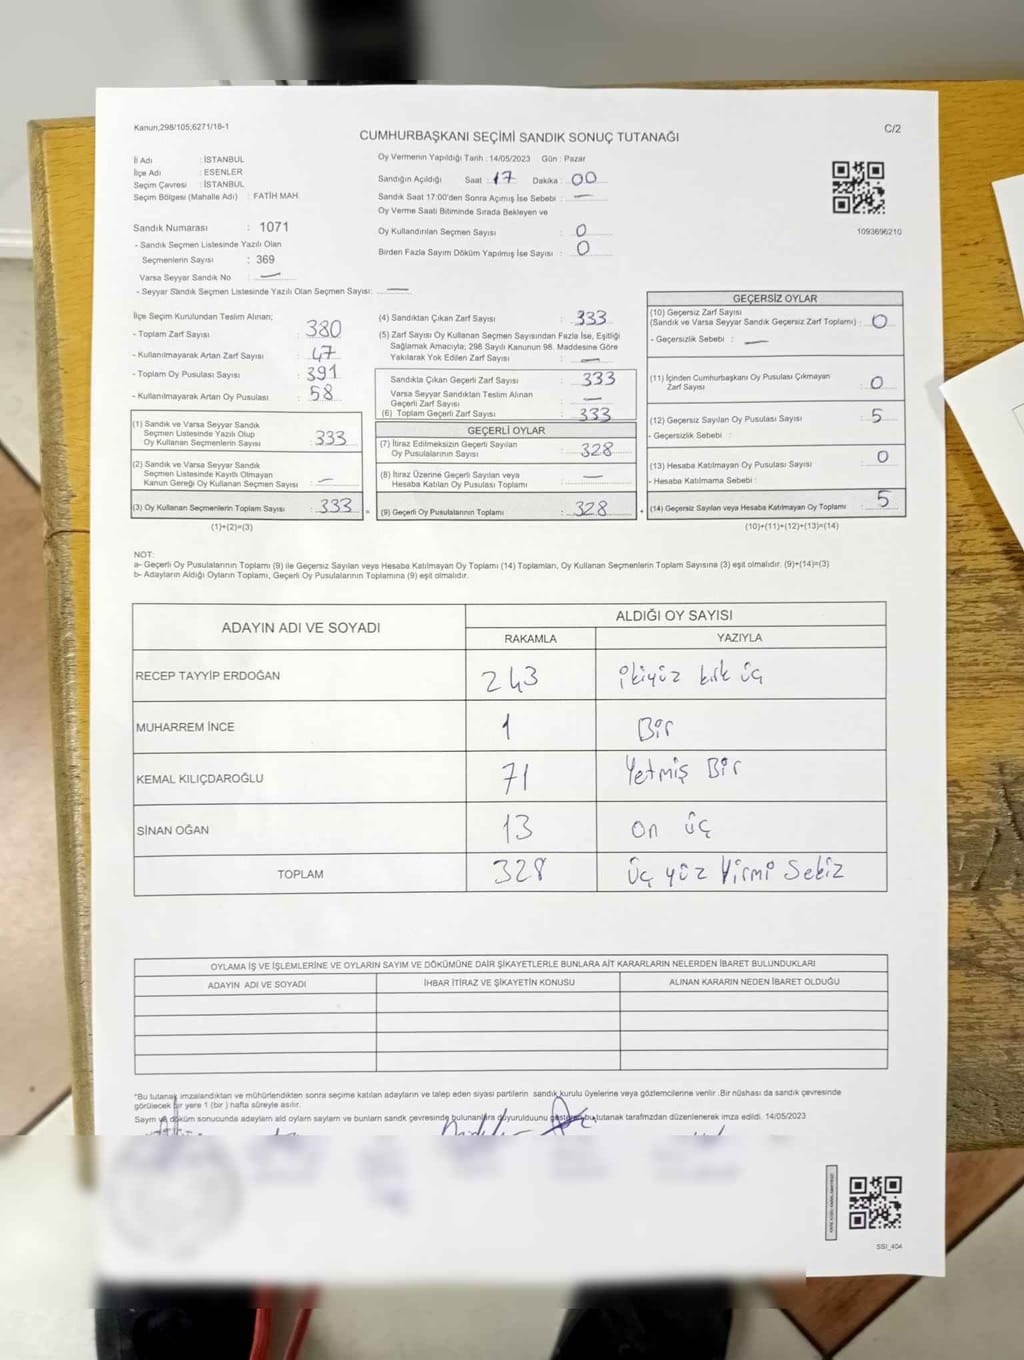 Kanun,298/105;6271/18-1
CUMHURBAŞKANI SEÇİMİ SANDIK SONUÇ TUTANAĞI
C/2
İl Adı : İSTANBUL
İlçe Adı : ESENLER
Seçim Çevresi : İSTANBUL
Seçim Bölgesi (Mahalle Adı) : FATİH MAH
Sandık Numarası : 1071
- Sandık Seçmen Listesinde Yazılı Olan
Seçmenlerin Sayısı : 369
Varsa Seyyar Sandık No : —
- Seyyar Sandık Seçmen Listesinde Yazılı Olan Seçmen Sayısı: —
Oy Vermenin Yapıldığı Tarih : 14/05/2023 Gün : Pazar
Sandığın Açıldığı Saat : 17 Dakika : 00
Sandık Saat 17:00'den Sonra Açılmış İse Sebebi : —
Oy Verme Saati Bitiminde Sırada Bekleyen ve
Oy Kullandırılan Seçmen Sayısı : 0
Birden Fazla Sayım Döküm Yapılmış İse Sayısı : 0
1093696210
İlçe Seçim Kurulundan Teslim Alınan;
- Toplam Zarf Sayısı : 380
- Kullanılmayarak Artan Zarf Sayısı : 47
- Toplam Oy Pusulası Sayısı : 391
- Kullanılmayarak Artan Oy Pusulası : 58
(1) Sandık ve Varsa Seyyar Sandık
Seçmen Listesinde Yazılı Olup
Oy Kullanan Seçmenlerin Sayısı : 333
(2) Sandık ve Varsa Seyyar Sandık
Seçmen Listesinde Kayıtlı Olmayan
Kanun Gereği Oy Kullanan Seçmen Sayısı : —
(3) Oy Kullanan Seçmenlerin Toplam Sayısı : 333
(1)+(2)=(3)
(4) Sandıktan Çıkan Zarf Sayısı : 333
(5) Zarf Sayısı Oy Kullanan Seçmen Sayısından Fazla İse, Eşitliği
Sağlamak Amacıyla; 298 Sayılı Kanunun 98. Maddesine Göre
Yakılarak Yok Edilen Zarf Sayısı : —
Sandıkta Çıkan Geçerli Zarf Sayısı : 333
Varsa Seyyar Sandıktan Teslim Alınan
Geçerli Zarf Sayısı : —
(6) Toplam Geçerli Zarf Sayısı : 333
GEÇERLİ OYLAR
(7) İtiraz Edilmeksizin Geçerli Sayılan
Oy Pusulalarının Sayısı : 328
(8) İtiraz Üzerine Geçerli Sayılan veya
Hesaba Katılan Oy Pusulası Toplamı : —
(9) Geçerli Oy Pusulalarının Toplamı : 328
GEÇERSİZ OYLAR
(10) Geçersiz Zarf Sayısı
(Sandık ve Varsa Seyyar Sandık Geçersiz Zarf Toplamı) : 0
- Geçersizlik Sebebi : —
(11) İçinden Cumhurbaşkanı Oy Pusulası Çıkmayan
Zarf Sayısı : 0
(12) Geçersiz Sayılan Oy Pusulası Sayısı : 5
- Geçersizlik Sebebi :
(13) Hesaba Katılmayan Oy Pusulası Sayısı : 0
- Hesaba Katılmama Sebebi :
(14) Geçersiz Sayılan veya Hesaba Katılmayan Oy Toplamı : 5
(10)+(11)+(12)+(13)=(14)
NOT:
a- Geçerli Oy Pusulalarının Toplamı (9) ile Geçersiz Sayılan veya Hesaba Katılmayan Oy Toplamı (14) Toplamları, Oy Kullanan Seçmenlerin Toplam Sayısına (3) eşit olmalıdır. (9)+(14)=(3)
b- Adayların Aldığı Oyların Toplamı, Geçerli Oy Pusulalarının Toplamına (9) eşit olmalıdır.
ADAYIN ADI VE SOYADI
ALDIĞI OY SAYISI
RAKAMLA YAZIYLA
RECEP TAYYİP ERDOĞAN 243 ikiyüz kırk üç
MUHARREM İNCE 1 Bir
KEMAL KILIÇDAROĞLU 71 Yetmiş Bir
SİNAN OĞAN 13 On üç
TOPLAM 328 üç yüz Yirmi Sekiz
OYLAMA İŞ VE İŞLEMLERİNE VE OYLARIN SAYIM VE DÖKÜMÜNE DAİR ŞİKAYETLERLE BUNLARA AİT KARARLARIN NELERDEN İBARET BULUNDUKLARI
ADAYIN ADI VE SOYADI İHBAR İTİRAZ VE ŞİKAYETİN KONUSU ALINAN KARARIN NEDEN İBARET OLDUĞU
"Bu tutanak imzalandıktan ve mühürlendikten sonra seçime katılan adayların ve talep eden siyasi partilerin sandık kurulu üyelerine veya gözlemcilerine verilir .Bir nüshası da sandık çevresinde
görülecek bir yere 1 (bir ) hafta süreyle asılır.
Sayım ve döküm sonucunda adayların aldı oyların sayların ve bunların sandk çevresinde bulunanlara duyurulduunu gösteren bu tutanak tarafımzdan düzenlenerek imza edildi. 14/05/2023
SSI_404